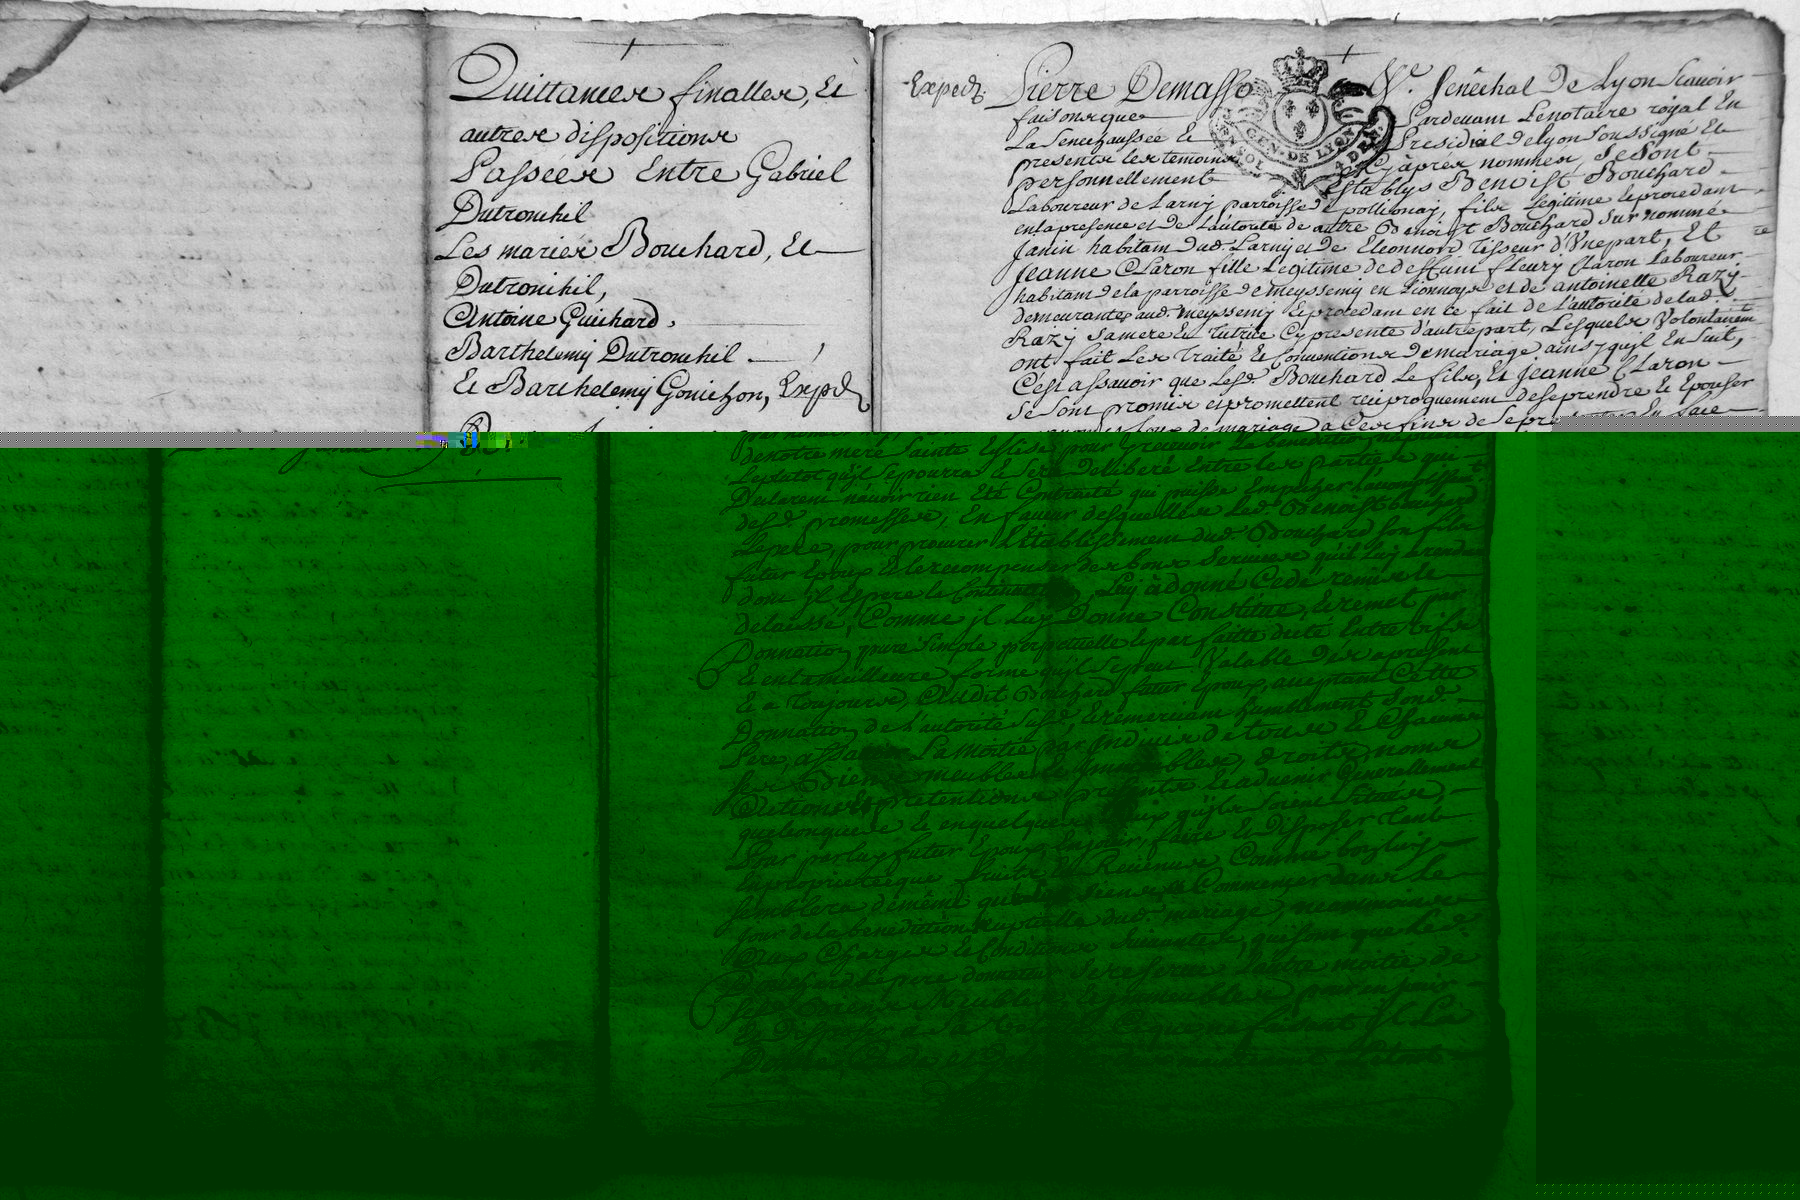 Quittances finalles, Et
autres dispositions
Passées Entre Gabriel
Dutronchil
Les mariés Bouchard, Et
Dutronchil,
Antoine Guichard,
Barthelemy Dutronchil
Et Barthelemy Gonichon, Exped
Exped. Pierre Demasso Senechal De Lyon Scavoir
faisons que Pardevant Le notaire royal En
La Senechaussée Et Presidial de Lyon Soussigné Et
presents les temoins Cy après nommes, Se Sont
personnellement Establys Benoist Bouchard
Laboureur de Larny parroisse de pollionay, fils Legitime Et procedant
en la presence et de L'autorité de autre Benoist Bouchard Surnommé
Janin habitant dud. Larny et de Eleonnord Tisseur d'Une part, Et
Jeanne Claron fille Legitime de deffunt fleury Claron Laboureur
habitant de la parroisse de meyssemy en Lionnoys et de antoinette Razy
demeurantes aud. meyssemy Et procedant en ce fait de l'autorité de lad.
Razy Sa mere Et Tutrice Cy presente d'autre part, Lesquels Volontairem
ont fait Les Traité Et Conventions de mariage ainsy qu'il En Suit,
C'est assavoir que Lesd. Bouchard Le fils, Et Jeanne Claron
Se Sont promis et promettent reciproquement de Se prendre Et Epouser
de notre mere Sainte Eglise pour y recevoir La benediction nuptiale
Le plutot qu'il Se pourra Et Sera deliberé Entre les parties qui
Declarent n'avoir rien Eté Contracté qui puisse Empecher
desd. promesses, En faveur desquelles Led. Benoist bouchard
Le pere, pour procurer L'établissement dud. Bouchard Son fils
futur Epoux Et le recompenser des bons Services qu'il Luy a rendu
dont jl Espere la Continuation, Luy à donné Cedé remis Et
delaissé, Comme jl Luy Donne Constitue, Et remet par
Donnation pure Simple perpetuelle Et par faitte dicte Entre vifs
Et en la meilleure forme qu'il Se peut Valable des apresent
Et a Toujours, Audit Bouchard futur Epoux, acceptant Cette
Donnation de L'autorité Susd. Et remerciant humblement Sond.
Pere, assavoir La moitié par Indivis de tous Et Chacuns
Ses Biens meubles Et Immeubles, droits, noms
Actions Et pretentions presents Et advenir Generallement
quelconques Et en quelques Lieux qu'ils Soient Situés,
Pour par Luy futur Epoux En jouir, faire Et Disposer tant
En proprieté que fruits Et Revenus, Comme bon Luy
Semblera de même que Siens Commencer dans le
jour de la benediction nuptialle dud. mariage, neanmoins
aux Charges Et Conditions Suivantes, qui Sont que Led.
Bouchard Le pere donnateur Se reserve L'autre moitié de
Ses Biens Meubles, Et jmmeubles pour en jouir